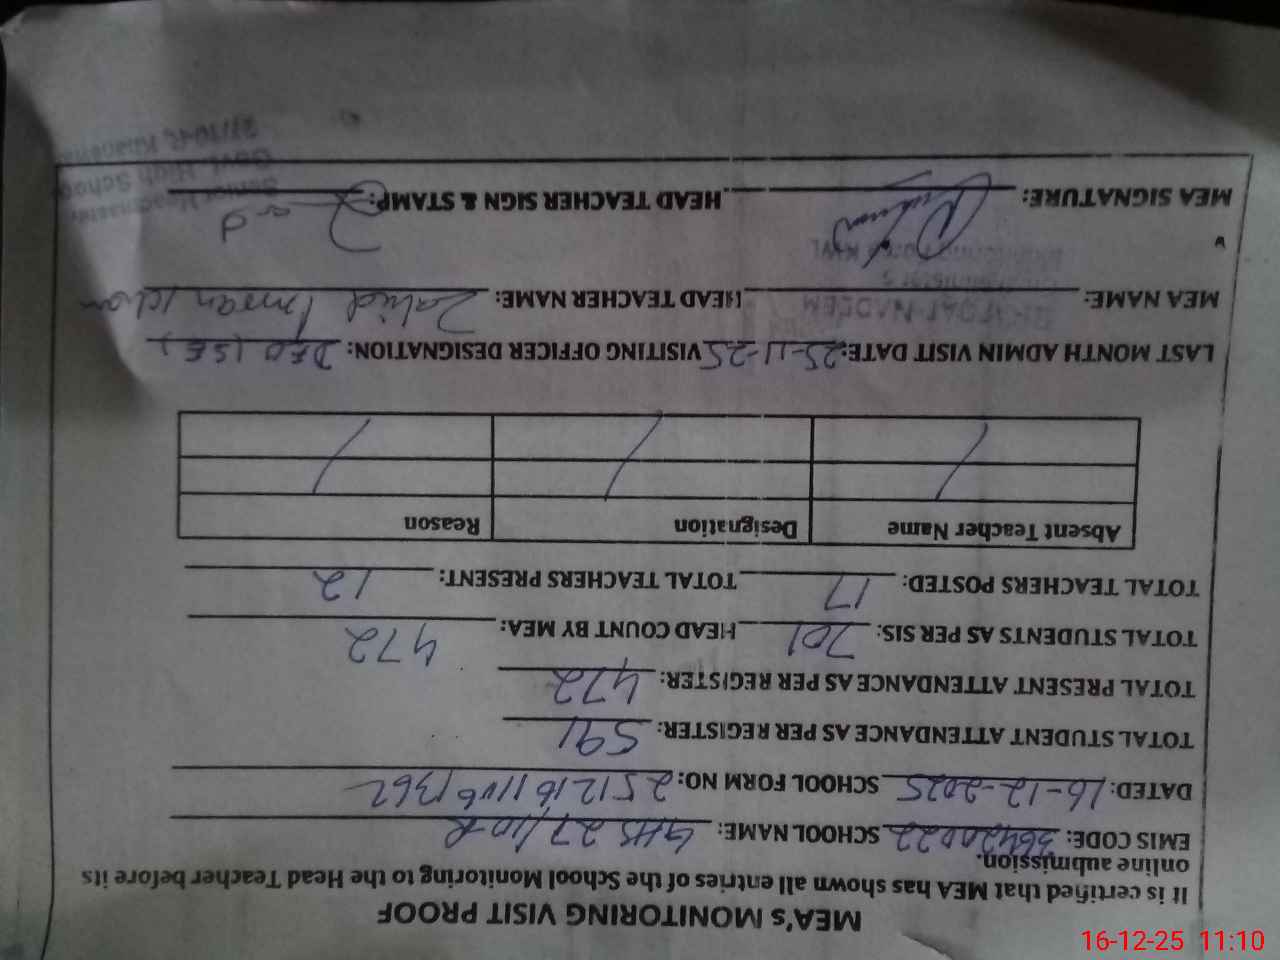 MEA's MONITORING VISIT PROOF
It is certified that MEA has shown all entries of the School Monitoring to the Head Teacher before its
online aubmission.
EMIS CODE: 36420022 SCHOOL NAME: GHS 27/10-R
DATED: 16-12-2025 SCHOOL FORM NO:
TOTAL STUDENT ATTENDANCE AS PER REGISTER: 591
TOTAL PRESENT ATTENDANCE AS PER REGISTER: 472
TOTAL STUDENTS AS PER SIS: 701 HEAD COUNT BY MEA: 472
TOTAL TEACHERS POSTED: 17 TOTAL TEACHERS PRESENT: 12
Absent Teacher Name Designation Reason
LAST MONTH ADMIN VISIT DATE: 25-11-25 VISITING OFFICER DESIGNATION: DEO (SE)
MEA NAME: HEAD TEACHER NAME: Zahid Imran
MEA SIGNATURE: HEAD TEACHER SIGN & STAMP:
Senior Headmaster
Govt. High School
27/10-R Khanewal
16-12-25 11:10